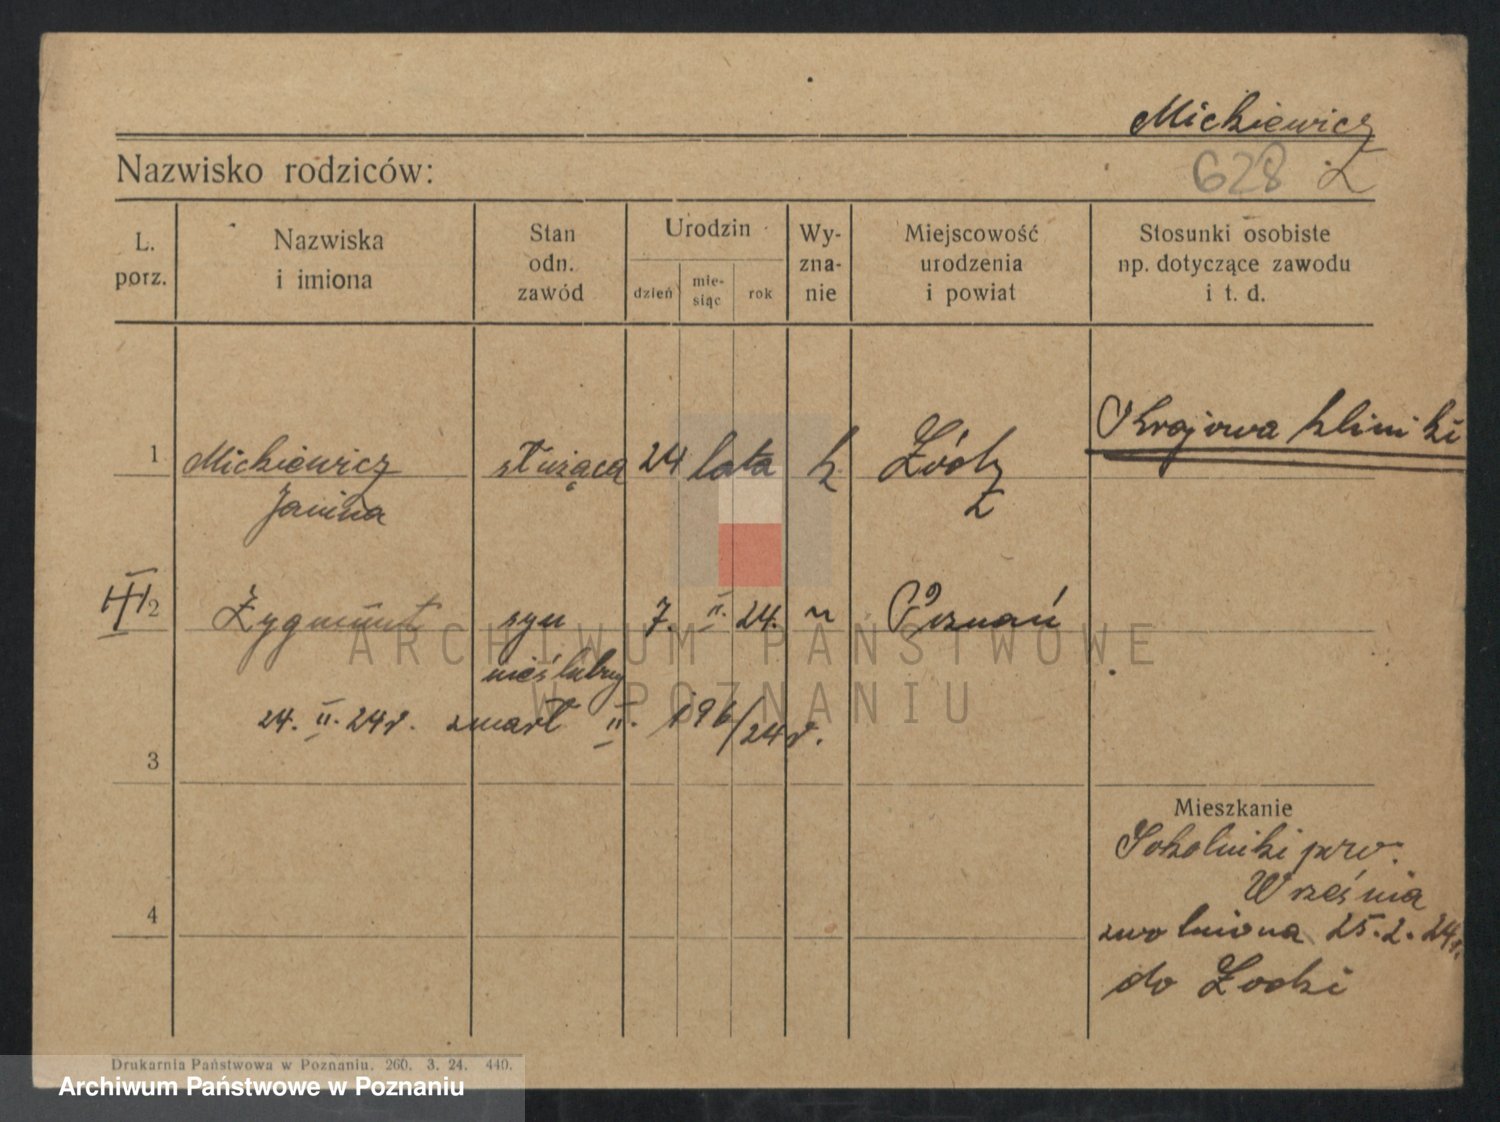 Mickiewicz
Nazwisko rodziców: 628 Ł
L. porz. Nazwiska i imiona Stan odn. zawód Urodzin dzień mie- siąc rok Wy- zna- nie Miejscowość urodzenia i powiat Stosunki osobiste np. dotyczące zawodu i t. d.
Krajowa kliniki
1 Mickiewicz służąca 24 lata k Łódź
Janina Ł
2 Zygmunt syn 7. II. 24. " Poznań
nieślubny
24. II. 24 r. zmarł II. 196/24 r.
3
Mieszkanie
Sokolniki pow.
Września
4 zwolniona 25.2.24 r.
do Łodzi
ARCHIWUM PAŃSTWOWE
W POZNANIU
Drukarnia Państwowa w Poznaniu. 260. 3. 24. 440.
Archiwum Państwowe w Poznaniu